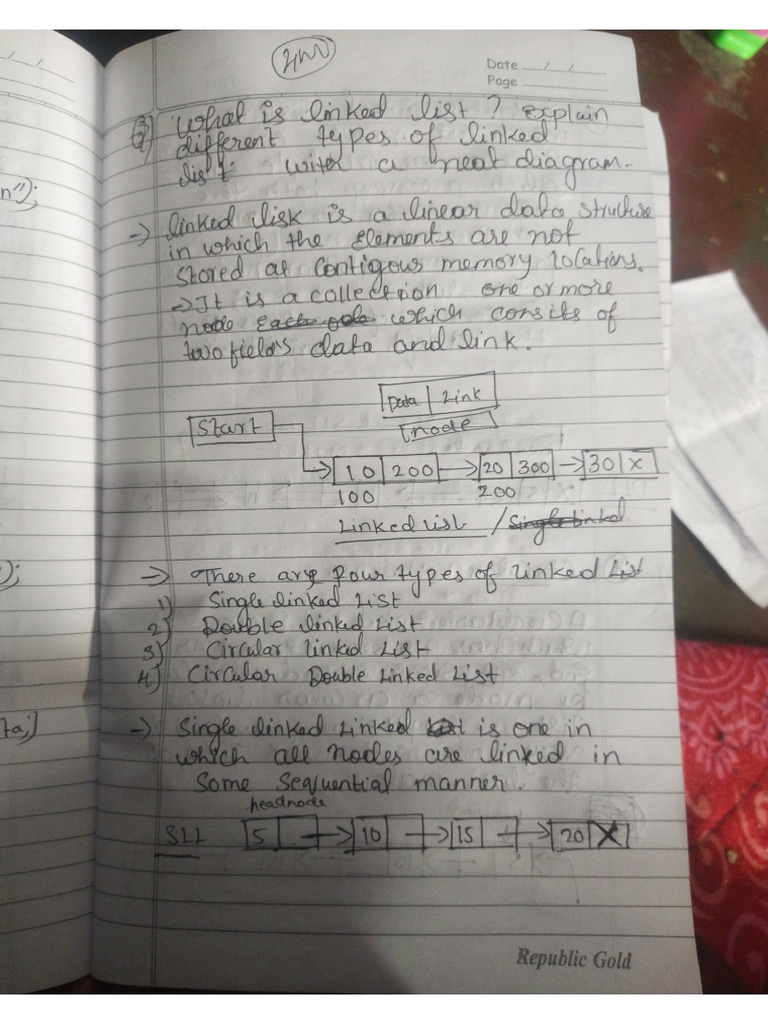 4M
Date __/__/__
Page
Q What is linked list? Explain
different types of linked
list with a neat diagram.
n");
→ linked lisk is a linear data structure
in which the elements are not
stored at contigous memory locations.
→ It is a collection one or more
node Each which consits of
two field's data and link.
Data | Link
node
Start
10 | 200 → 20 | 300 → 30 | X
100 200
Linked List / Single Linked
);
→ There are four types of Linked List
1) Single linked List
2) Double linked List
3) Circular linked List
4) Circular Double Linked List
ta;)
→ Single linked Linked List is one in
which all nodes are linked in
some sequential manner.
headnode
SLL 5 | → 10 | → 15 | → 20 | X
Republic Gold